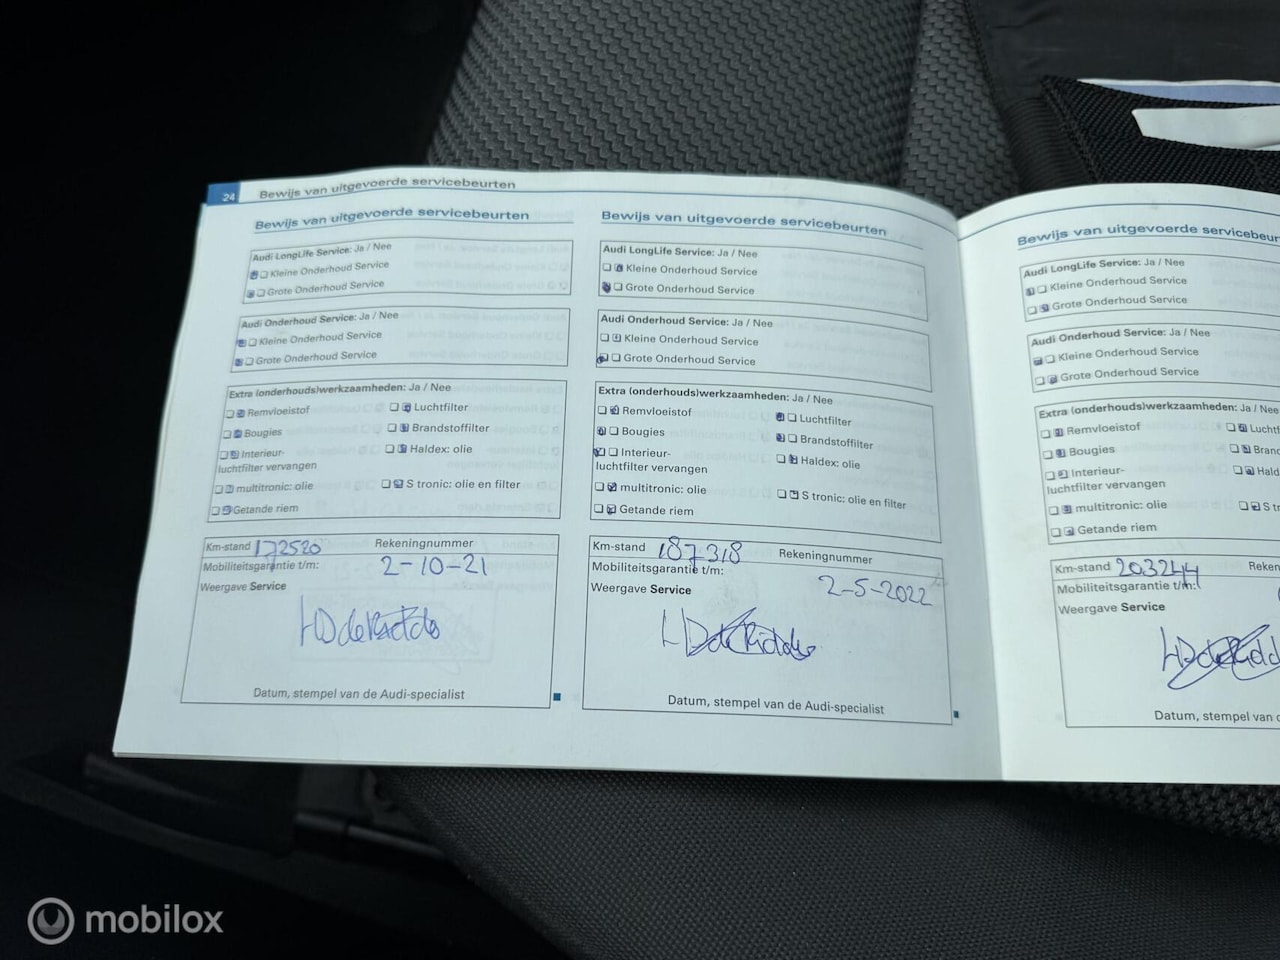 24 Bewijs van uitgevoerde servicebeurten
Bewijs van uitgevoerde servicebeurten
Audi LongLife Service: Ja / Nee
Kleine Onderhoud Service
Grote Onderhoud Service
Audi Onderhoud Service: Ja / Nee
Kleine Onderhoud Service
Grote Onderhoud Service
Extra (onderhouds)werkzaamheden: Ja / Nee
Remvloeistof Luchtfilter
Bougies Brandstoffilter
Interieur- Haldex: olie
luchtfilter vervangen
multitronic: olie S tronic: olie en filter
Getande riem
Km-stand 172520 Rekeningnummer
Mobiliteitsgarantie t/m: 2-10-21
Weergave Service
Datum, stempel van de Audi-specialist
Bewijs van uitgevoerde servicebeurten
Audi LongLife Service: Ja / Nee
Kleine Onderhoud Service
Grote Onderhoud Service
Audi Onderhoud Service: Ja / Nee
Kleine Onderhoud Service
Grote Onderhoud Service
Extra (onderhouds)werkzaamheden: Ja / Nee
Remvloeistof Luchtfilter
Bougies Brandstoffilter
Interieur- Haldex: olie
luchtfilter vervangen
multitronic: olie S tronic: olie en filter
Getande riem
Km-stand 187318 Rekeningnummer
Mobiliteitsgarantie t/m:
2-5-2022
Weergave Service
Datum, stempel van de Audi-specialist
Bewijs van uitgevoerde servicebeur
Audi LongLife Service: Ja / Nee
Kleine Onderhoud Service
Grote Onderhoud Service
Audi Onderhoud Service: Ja / Nee
Kleine Onderhoud Service
Grote Onderhoud Service
Extra (onderhouds)werkzaamheden: Ja / Nee
Remvloeistof Luchtf
Bougies Brand
Interieur- Hald
luchtfilter vervangen
multitronic: olie S t
Getande riem
Km-stand 203244 Reken
Mobiliteitsgarantie t/m:
Weergave Service
Datum, stempel van d
mobilox